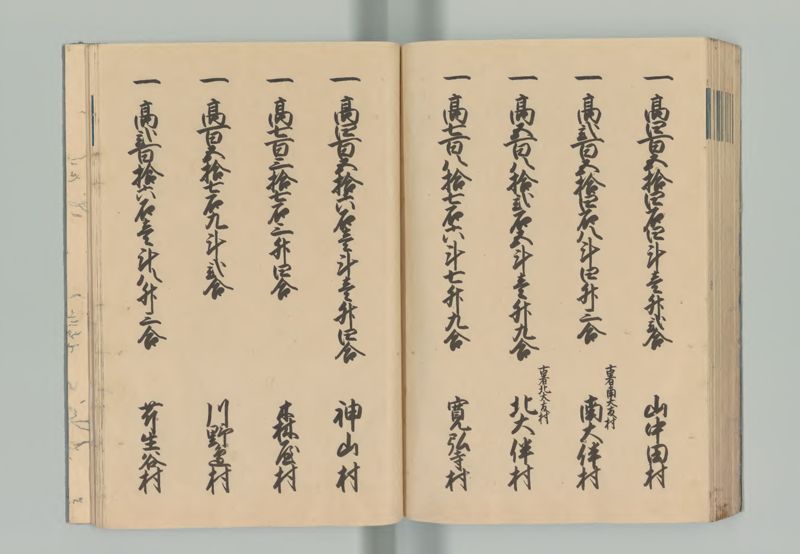 一 高四百五拾四石四斗壱升弐合 山中田村
一 高弐百五拾四石八斗四升三合 南大伴村
古者南大友村
一 高五百八拾弐石五斗壱升九合 北大伴村
古者北大友村
一 高七百八拾七石六斗七升九合 寛弘寺村
一 高四百五拾六石壱斗壱升四合 神山村
一 高七百三拾七石三升四合 森屋村
一 高百五拾七石九斗弐合 川野邊村
一 高弐百拾六石壱斗八升三合 芹生谷村